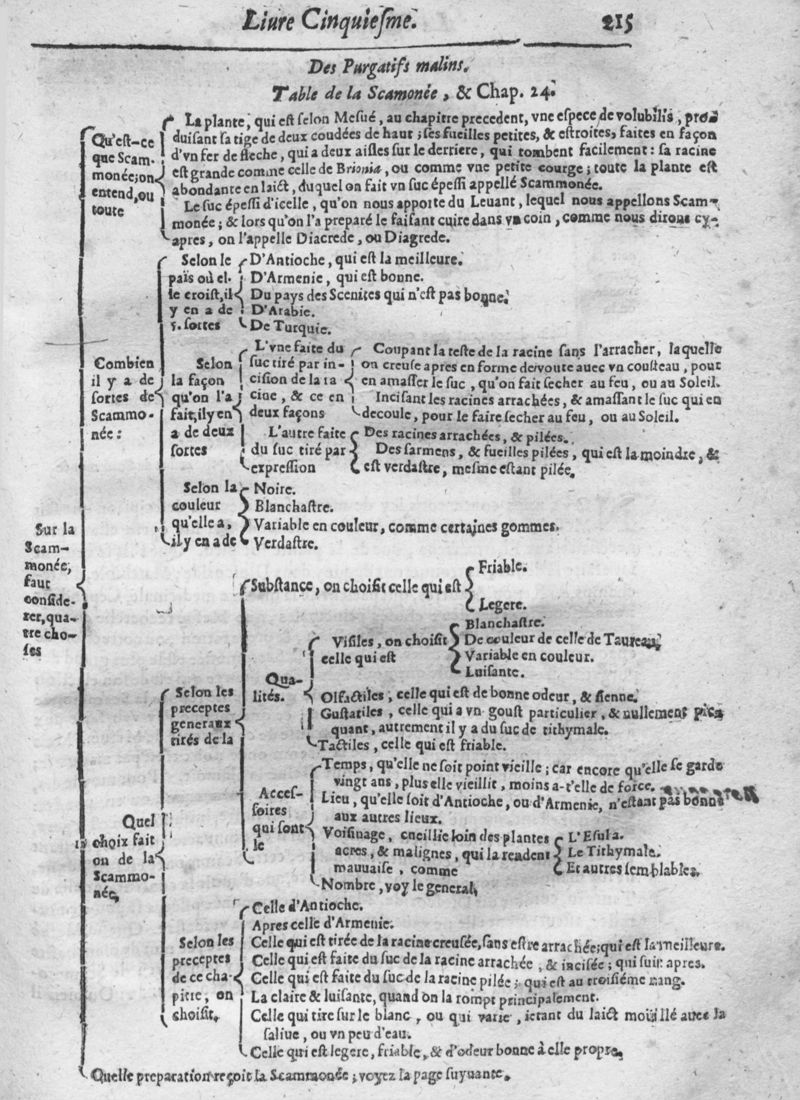 Liure Cinquiesme. 215
Des Purgatifs malins.
Table de la Scamonée, & Chap. 24.
Sur la
Scam-
monée,
faut
conside-
rer, qua-
tre cho-
ses
Qu'est-ce
que Scam-
monée; on
entend, ou
toute
La plante, qui est selon Mesué, au chapitre precedent, vne espece de volubilis, pro-
duisant sa tige de deux coudées de haut; ses fueilles petites, & estroites, faites en façon
d'vn fer de fleche, qui a deux aisles sur le derriere, qui tombent facilement: sa racine
est grande comme celle de Brionia, ou comme vne petite courge; toute la plante est
abondante en laict, duquel on fait vn suc épessi appellé Scammonée.
Le suc épessi d'icelle, qu'on nous apporte du Leuant, lequel nous appellons Scam-
monée; & lors qu'on l'a preparé le faisant cuire dans vn coin, comme nous dirons cy-
apres, on l'appelle Diacrede, ou Diagrede.
Combien
il y a de
sortes de
Scammo-
née:
Selon le
païs où el-
le croist, il
y en a de
5. sortes
D'Antioche, qui est la meilleure.
D'Armenie, qui est bonne.
Du pays des Scenites qui n'est pas bonne.
D'Arabie.
De Turquie.
Selon
la façon
qu'on l'a
fait, il y en
a de deux
sortes
L'vne faite du
suc tiré par in-
cision de la ra
cine, & ce en
deux façons
Coupant la teste de la racine sans l'arracher, laquelle
on creuse apres en forme de voute auec vn cousteau, pour
en amasser le suc, qu'on fait secher au feu, ou au Soleil.
Incisant les racines arrachées, & amassant le suc qui en
decoule, pour le faire secher au feu, ou au Soleil.
L'autre faite
du suc tiré par
expression
Des racines arrachées, & pilées.
Des sarmens, & fueilles pilées, qui est la moindre, &
est verdastre, mesme estant pilée.
Selon la
couleur
qu'elle a,
il y en a de
Noire.
Blanchastre.
Variable en couleur, comme certaines gommes.
Verdastre.
Quel
choix fait
on de la
Scammo-
née,
Selon les
preceptes
generaux
tirés de la
Substance, on choisit celle qui est
Friable.
Legere.
Qua-
lités.
Visiles, on choisit
celle qui est
Blanchastre.
De couleur de celle de Taureau,
Variable en couleur.
Luisante.
Olfactiles, celle qui est de bonne odeur, & sienne.
Gustatiles, celle qui a vn goust particulier, & nullement pic-
quant, autrement il y a du suc de tithymale.
Tactiles, celle qui est friable.
Acces-
soires
qui sont
le
Temps, qu'elle ne soit point vieille; car encore qu'elle se garde
vingt ans, plus elle vieillit, moins a-t'elle de force.
Lieu, qu'elle soit d'Antioche, ou d'Armenie, n'estant pas bonne
aux autres lieux.
Voisinage, cneillie loin des plantes
acres, & malignes, qui la rendent
mauuaise, comme
L'Esula.
Le Tithymale.
Et autres semblables.
Nombre, voy le general,
Selon les
preceptes
de ce cha-
pitre, on
choisit,
Celle d'Antioche.
Apres celle d'Armenie.
Celle qui est tirée de la racine creusée, sans estre arrachée; qui est la meilleure.
Celle qui est faite du suc de la racine arrachée, & incisée; qui suit apres.
Celle qui est faite du suc de la racine pilée; qui est au troisiéme rang.
La claire & luisante, quand on la rompt principalement.
Celle qui tire sur le blanc, ou qui varie, ietant du laict moüillé auec la
saliue, ou vn peu d'eau.
Celle qui est legere, friable, & d'odeur bonne à elle propre,
Quelle preparation reçoit la Scammonée; voyez la page suyuante.